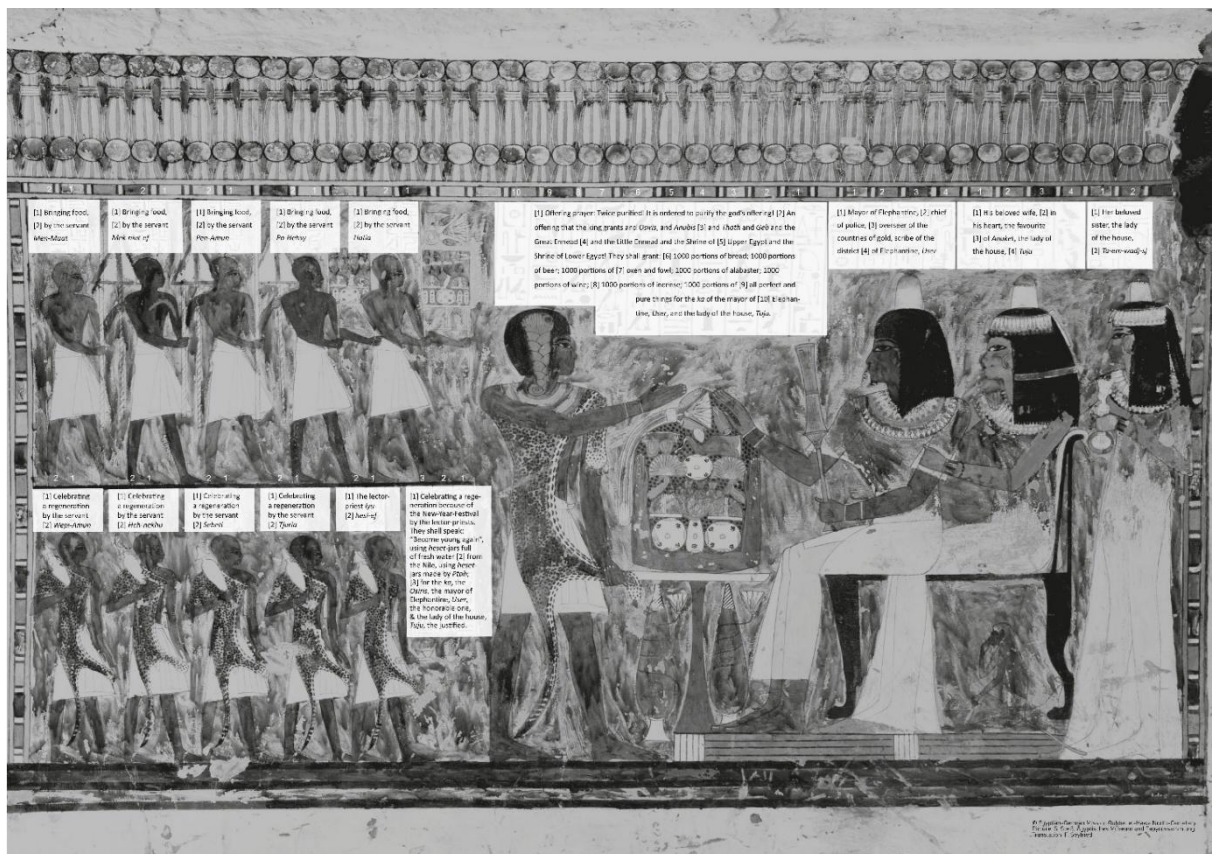 [1] Bringing food,
[2] by the servant
Men-Maat
[1] Bringing food,
[2] by the servant
[1] Bringing food,
[2] by the servant
Pen-Amun
[1] Bringing food,
[2] by the servant
[1] Bringing food,
[2] by the servant
[1] Offering prayer: Twice purified! It is ordered to purify the god's offering! [2] An
offering that the king grants and Osiris, and Anubis [3] and Thoth and Geb and the
Great Ennead [4] and the Little Ennead and the Shrine of [5] Upper Egypt and the
Shrine of Lower Egypt! They shall grant: [6] 1000 portions of bread; 1000 portions
of beer; 1000 portions of [7] oxen and fowl; 1000 portions of alabaster; 1000
portions of wine; [8] 1000 portions of incense; 1000 portions of [9] all perfect and
pure things for the ka of the mayor of [10] Elephan-
tine, User, and the lady of the house, Tuja.
[1] Mayor of Elephantine, [2] chief
of police, [3] overseer of the
countries of gold, scribe of the
district [4] of Elephantine, User
[1] His beloved wife, [2] in
his heart, the favourite
[3] of Anuket, the lady of
the house, [4] Tuja
[1] Her beloved
sister, the lady
of the house,
[2]
[1] Celebrating
a regeneration
by the servant
[2] Wepi-Amun
[1] Celebrating
a regeneration
by the servant
[2] Heh-nekhu
[1] Celebrating
a regeneration
by the servant
[2]
[1] Celebrating
a regeneration
by the servant
[2] Tjuria
[1] The lector-
priest Iyu
[2] hesi-ef
[1] Celebrating a rege-
neration because of
the New-Year-Festival
by the lector-priests.
They shall speak:
"Become young again",
using heset-jars full
of fresh water [2] from
the Nile, using heset-
jars made by Ptah;
[3] for the ka, the
Osiris, the mayor of
Elephantine, User,
the honorable one,
& the lady of the house,
Tuja, the justified.